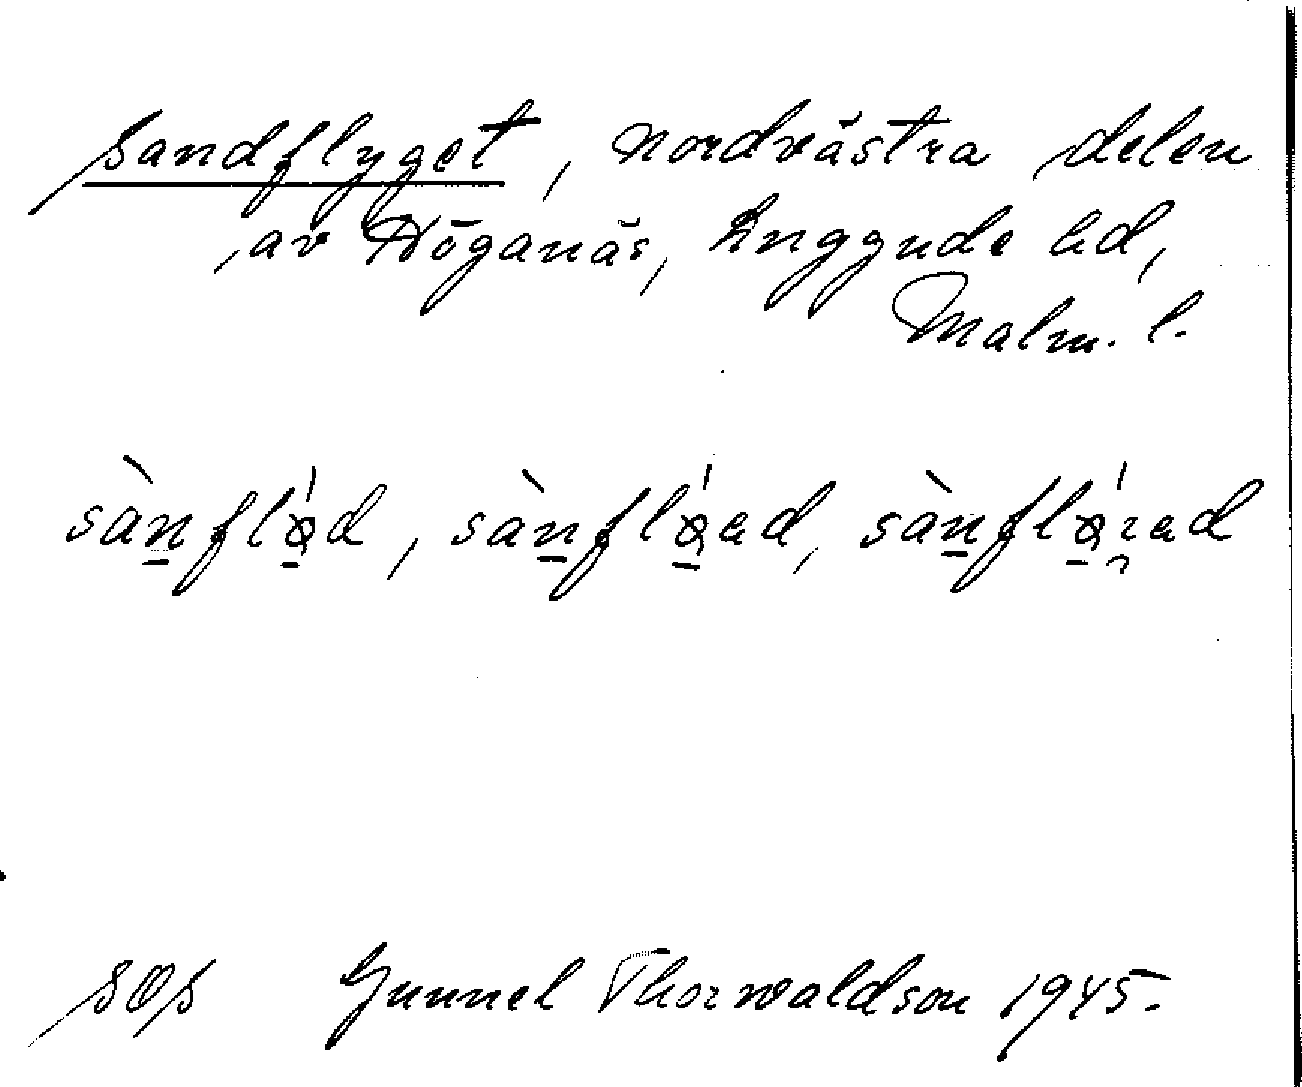 Sandflyget, nordvästra delen
av Höganäs, Luggude hd,
Malm. l.
sànflø̀d, sànfløed, sànfløred
SOS Gunnel Thorwaldson 1945.